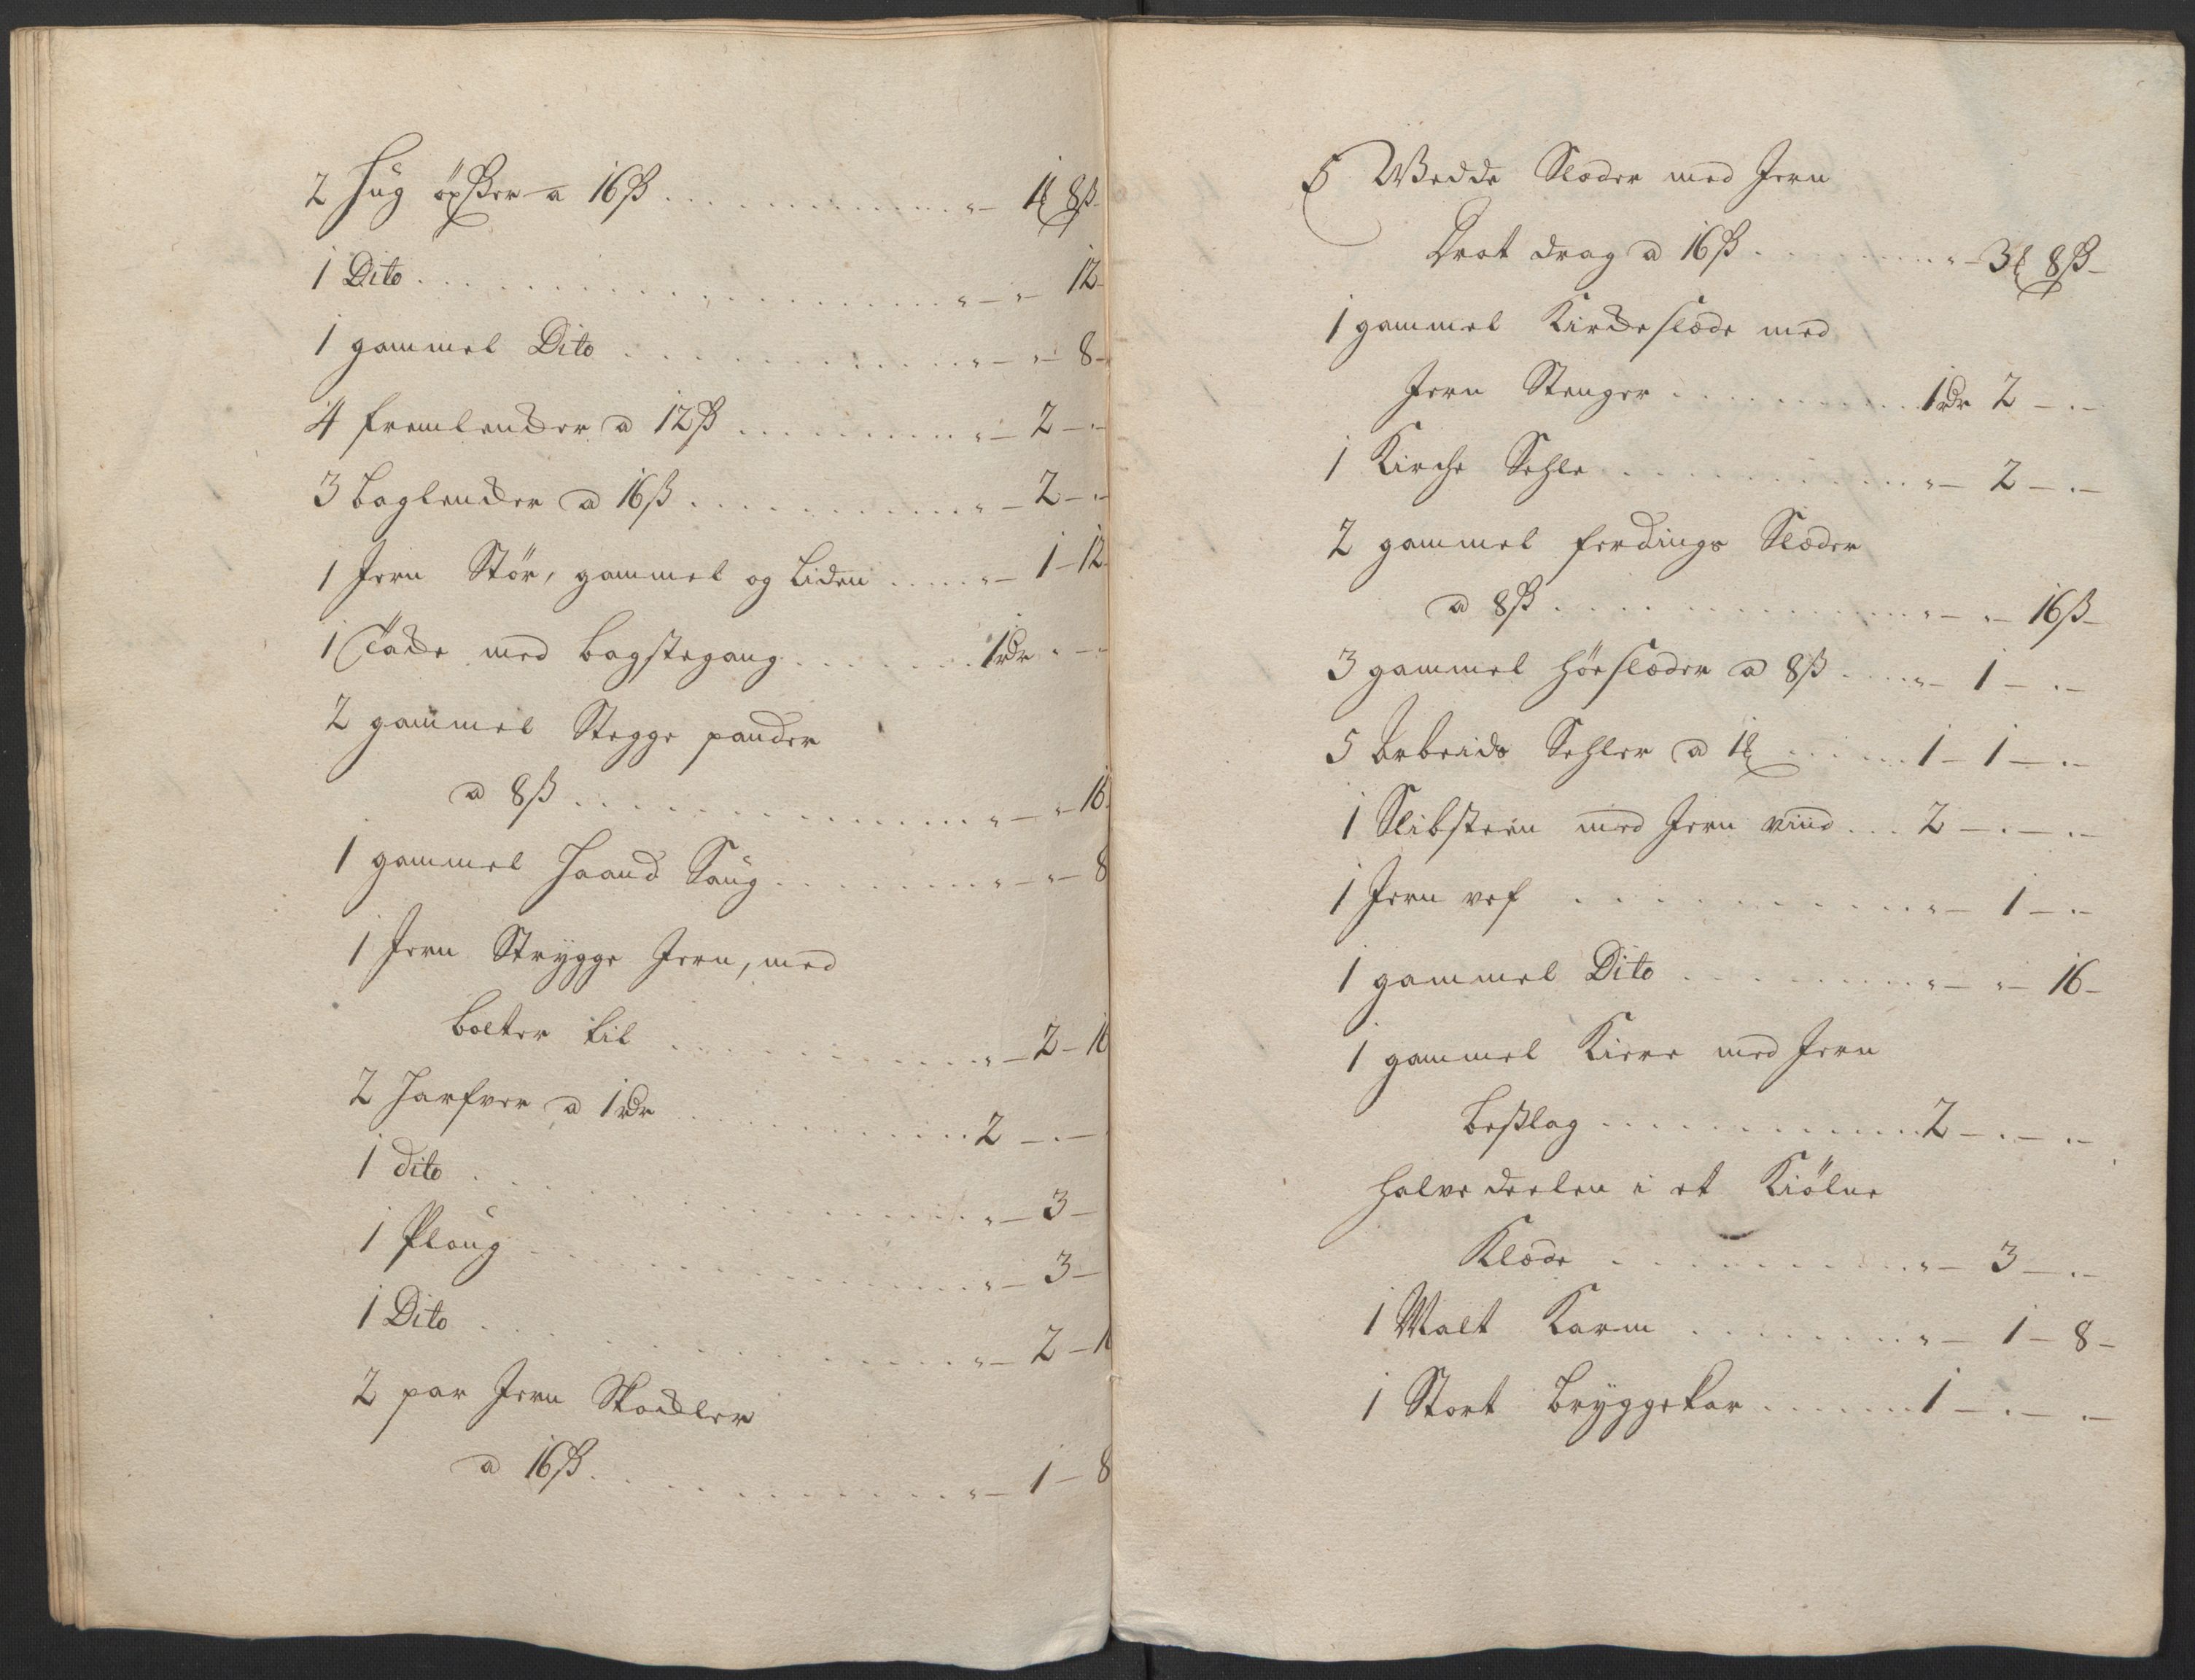 2 Hug öxßer a 16ß . . . . . . . . . . „ – 1₰ 8ß
1 Dito . . . . . . . . . . „ – „ – 12
1 gammel Dito . . . . . . . . . . „ – „ – 8 –
4 fremlencker a 12ß . . . . . . . . „ – 2 – „
3 baglencker a 16ß . . . . . . . . „ – 2 – „
1 Jern Stör, gammel og Liden . . . . . „ – 1 – 12
1 med bagstegang . . . . . . . 1rdr „ – „
2 gammel Stegge pander
a 8ß . . . . . . . . . . „ – „ – 16
1 gammel Haand Saug . . . . . . . . „ – „ – 8
1 Jern Strygge Jern, med
bolter til . . . . . . . . . . „ – 2 – 16
2 Harfver a 1rdr . . . . . . . . . 2 – „ –
1 dito . . . . . . . . . . „ – 3 –
1 Ploug . . . . . . . . . . „ – 3 –
1 Dito . . . . . . . . . . „ – 2 – 1
2 par Jern Skackler
a 16ß . . . . . . . . . . „ – 1 – 8
5 Wedde Slæder med Jern
Drat drag a 16ß . . . . . . . . „ – 3₰ 8ß –
1 gammel Kirckeslæde med
Jern Stenger . . . . . . . . . 1rdr 2 – „ –
1 Kirche Sehle . . . . . . . . . „ – 2 – „ –
2 gammel ferdings Slæder
a 8ß . . . . . . . . . . „ – „ – 16ß –
3 gammel höeslæder a 8ß . . . . „ – 1 – „ –
5 Arbeids Sehler a 1₰ . . . . . 1 – 1 – „ –
1 Slibsteen med Jern vind . . . 2 – „ – „ –
1 Jern vef . . . . . . . . . . „ – 1 – „ –
1 gammel Dito . . . . . . . . . „ – „ – 16 –
1 gammel Kierre med Jern
beßlag . . . . . . . . . . 2 – „ – „ –
halve deelen i et Kiölne
Klæde . . . . . . . . . . „ – 3 – „ –
1 Malt Karm . . . . . . . . „ – 1 – 8 –
1 Stort bryggekar . . . . . . 1 – „ – „ –